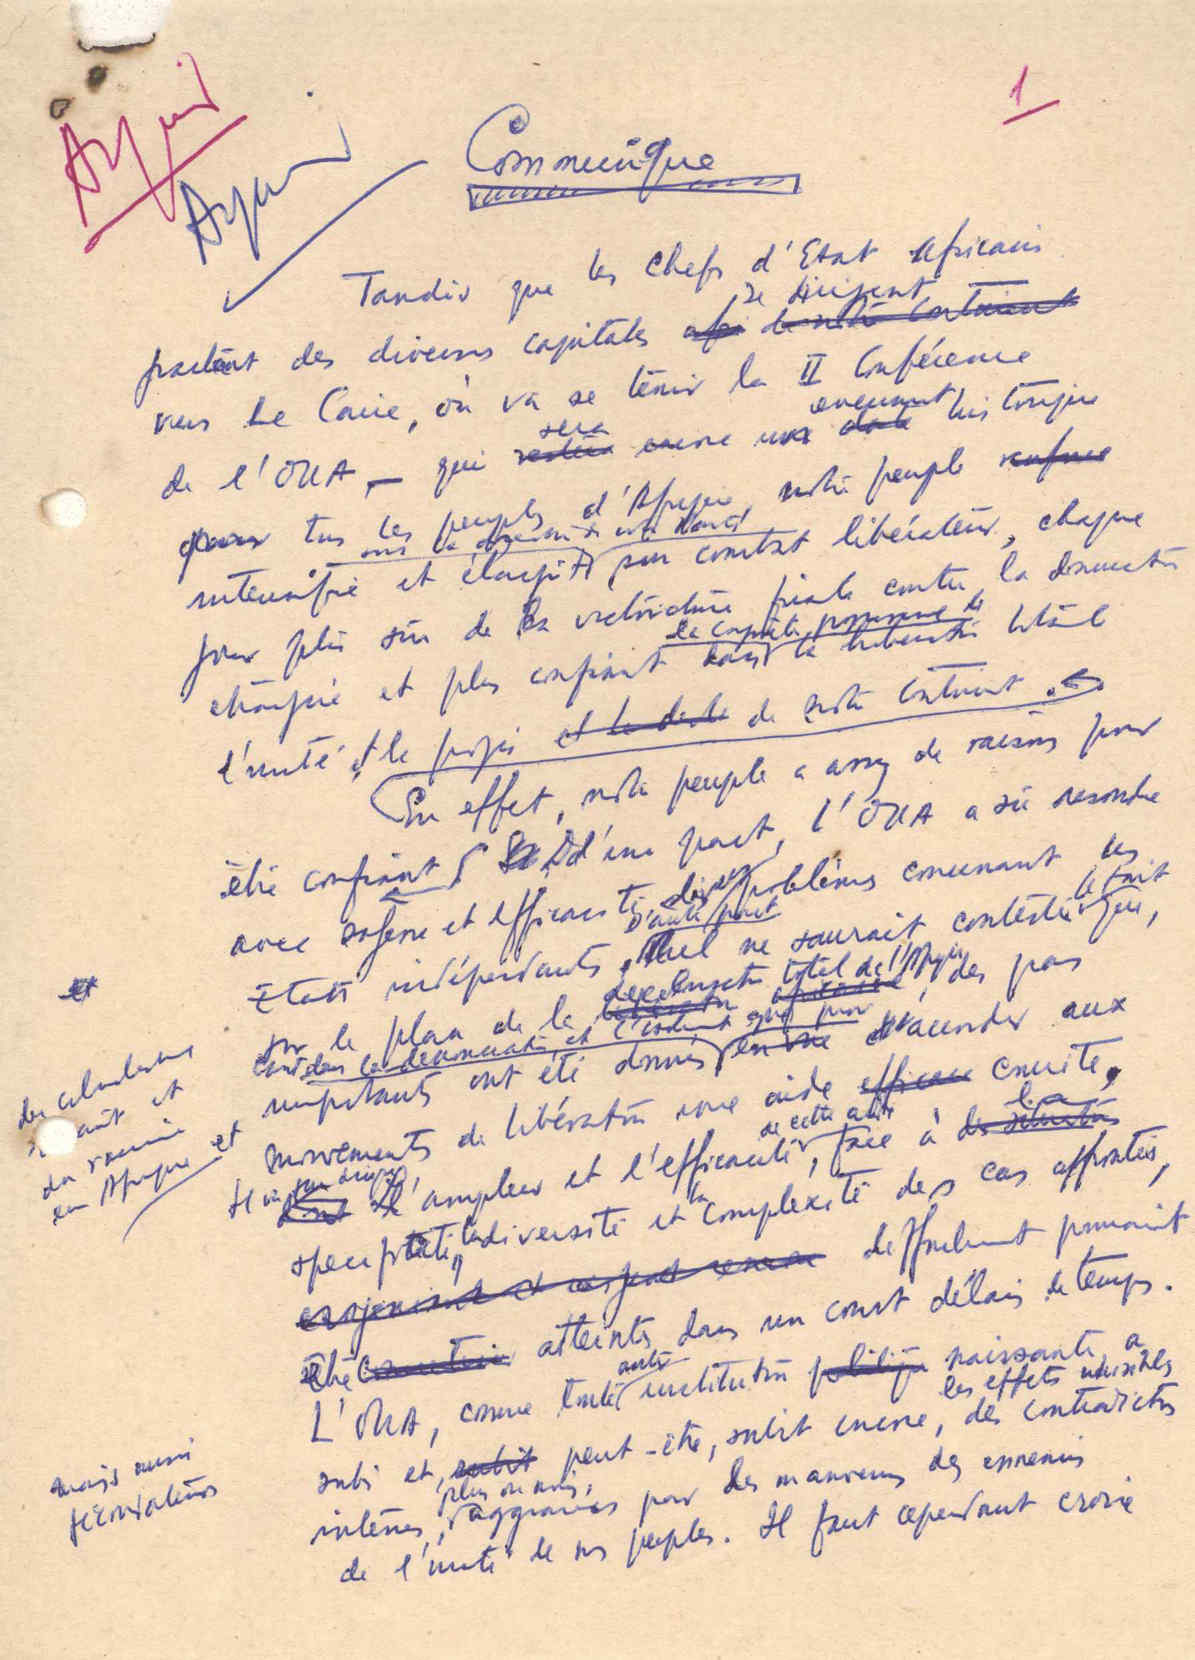 1
Communiqué
Tandis que les chefs d'Etat africains
se dirigent
partant des diverses capitales afri de notre Continent
vers Le Caire, où va se tenir la II Conférence
sera evenement
de l'OUA, — qui restera encore une date historique
pour tous les peuples d'Afrique, notre peuple renforce
sous la direction de
intensifie et élargit son combat libérateur, chaque
jour plus sûr de la victoire finale contre la domination
la capitale
étrangère et plus confiant dans la libération totale
l'unité et le progrès et le de notre Continent.
En effet, notre peuple a assez de raisons pour
être confiant; d'une part, l'OUA a su resoudre
avec sagesse et efficacité divers problèmes concernant les
D'autre part le fait
Etats indépendants. Nul ne saurait contester que,
decolonisation total de l'Afrique
sur le plan de la libération africaine, des pas
importants ont été donnés en vue d'accorder aux
mouvements de libération une aide efficace concrète,
de cette aide la
l'ampleur et l'efficacité, face à la situation
specificité, la diversité et la complexité des cas affrontés,
difficilement pouvait
être atteints dans un court délais de temps.
autre
L'OUA, comme toute institution politique naissante, a
les effets nuisibles
subi et, subit peut-être, subit encore, des contradictions
plus ou moins
internes, aggravées par des manœuvres des ennemis
de l'unité de nos peuples. Il faut cependant croire
et
du colonialisme
et
du racisme
en Afrique et
mais aussi